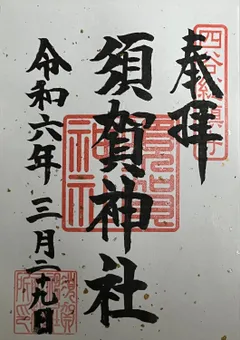 奉拝
四谷総鎮守
須賀神社
令和六年 三月二十九日